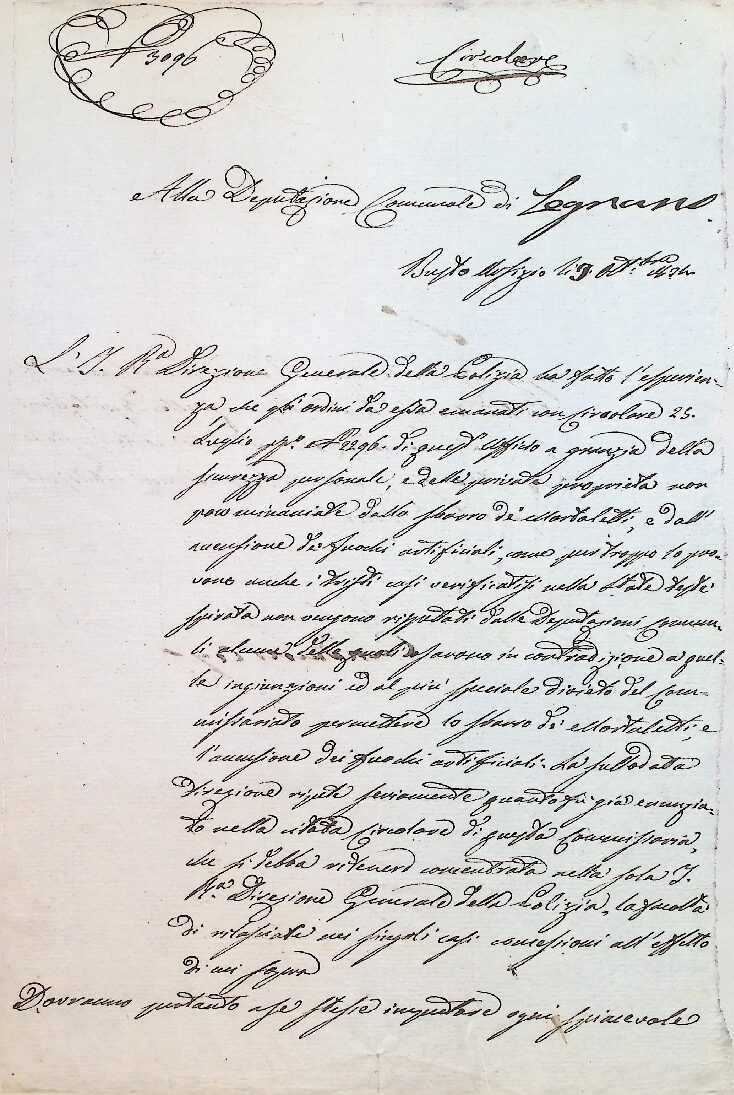 N 3096
Circolare
Alla Deputazione Comunale di Legnano
Busto Arsizio li 9
L' I. Ra Direzione Generale della Polizia ha fatto l'esperien-
za che gli ordini da essa emanati con Circolare 25.
Luglio N 2296 di quest' Ufficio a garanzia della
sicurezza personale, e delle private proprietà non
poco minacciate dallo sbarro de' Mortaletti, e dall'
accensione de' fuochi artificiali, come pur troppo lo pro-
vano anche i tristi casi verificatisi nella state testè
spirata non vengono rispettati dalle Deputazioni Comuna-
li alcune delle quali osarono in contradizione a quel-
le ingiunzioni ed al più speciale divieto del Com-
missariato permettere lo sbarro de' Mortaletti e
l'accensione dei fuochi artificiali. La sullodata
Direzione ripete seriamente quanto fu già enunzia-
to nella citata Circolare di questo Commissario,
che si debba ritenere concentrata nella sola I.
Ra Direzione Generale della Polizia, la facoltà
di rilasciare nei singoli casi concessioni all'effetto
di cui sopra
Dovranno pertanto a se stesse imputare ogni spiacevole